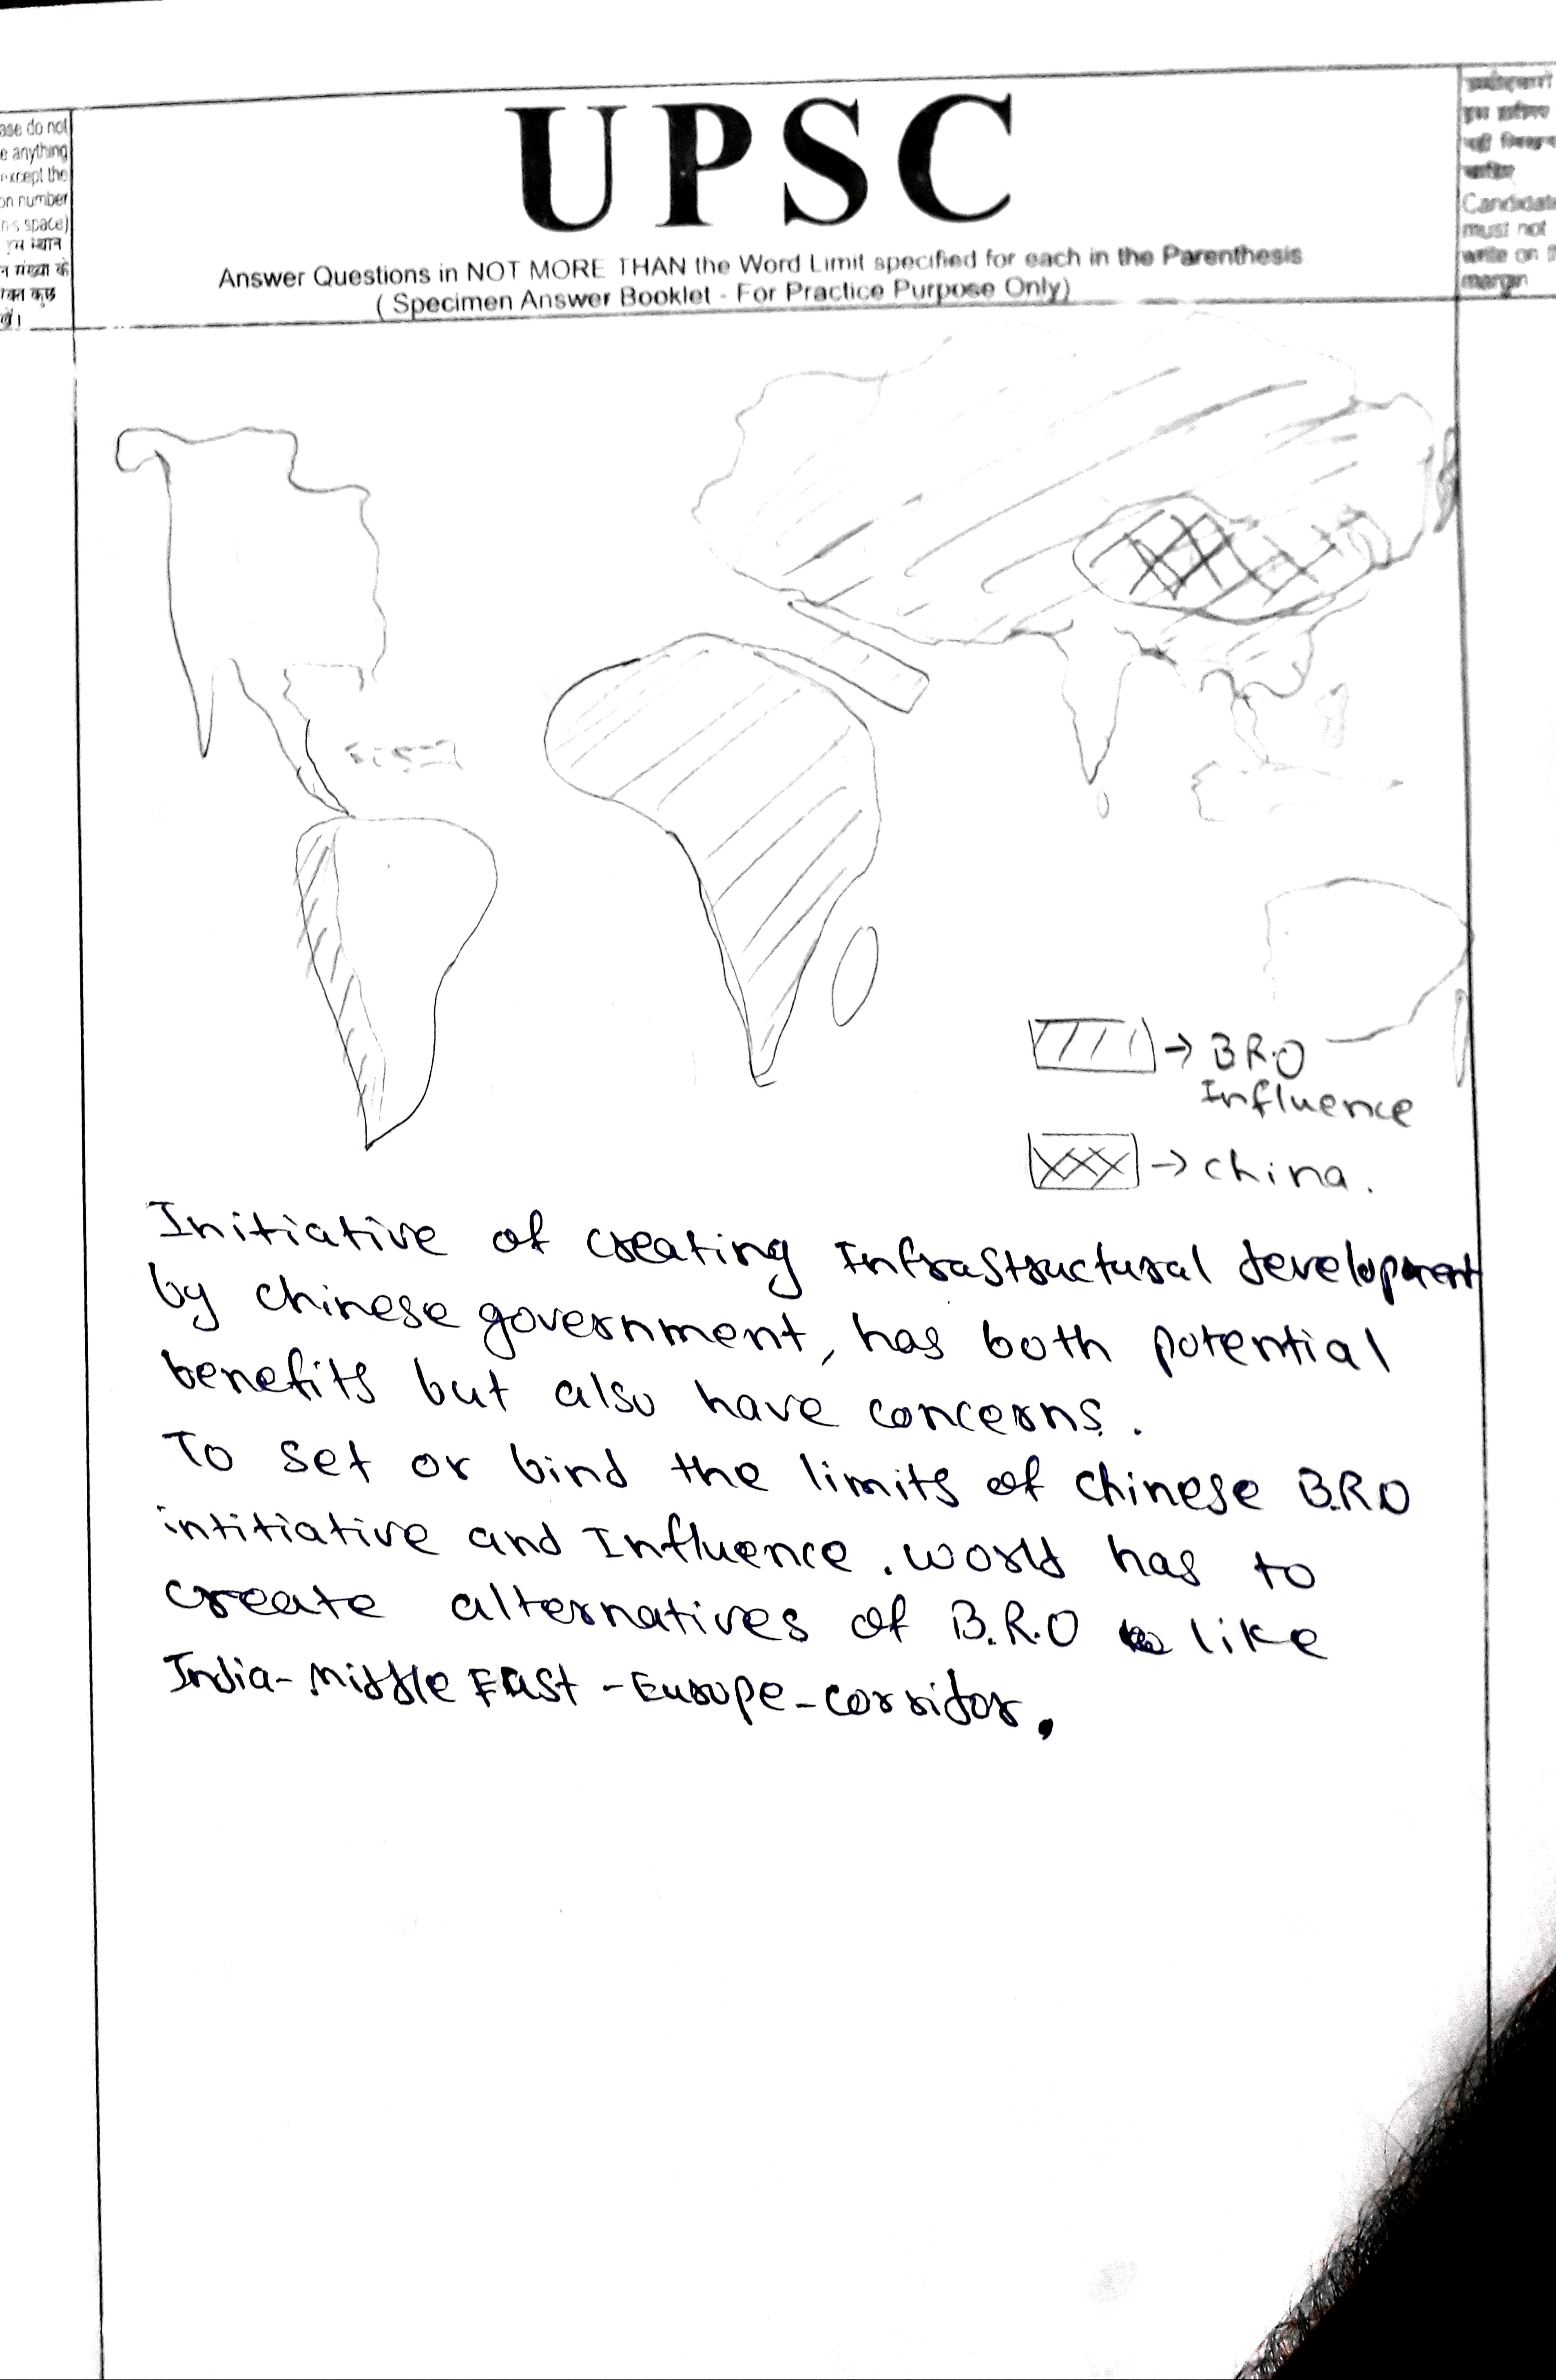 ase do not
e anything
xcept the
on number
s space)
UPSC
Answer Questions in NOT MORE THAN the Word Limit specified for each in the Parenthesis
( Specimen Answer Booklet - For Practice Purpose Only)
Candidate
must not
write on
margin
→ B.R.O
Influence
→ china.
Initiative of creating Infrastructural development
by chinese government, has both potential
benefits but also have concerns.
To set or bind the limits of chinese B.R.O
intitiative and Influence. world has to
create alternatives of B.R.O like
India-Middle East-Europe-corridor.